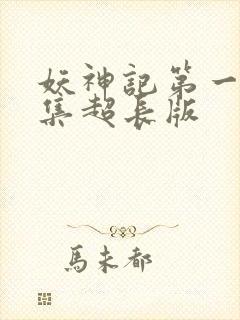 妖神記第一
集超長版
馬未都